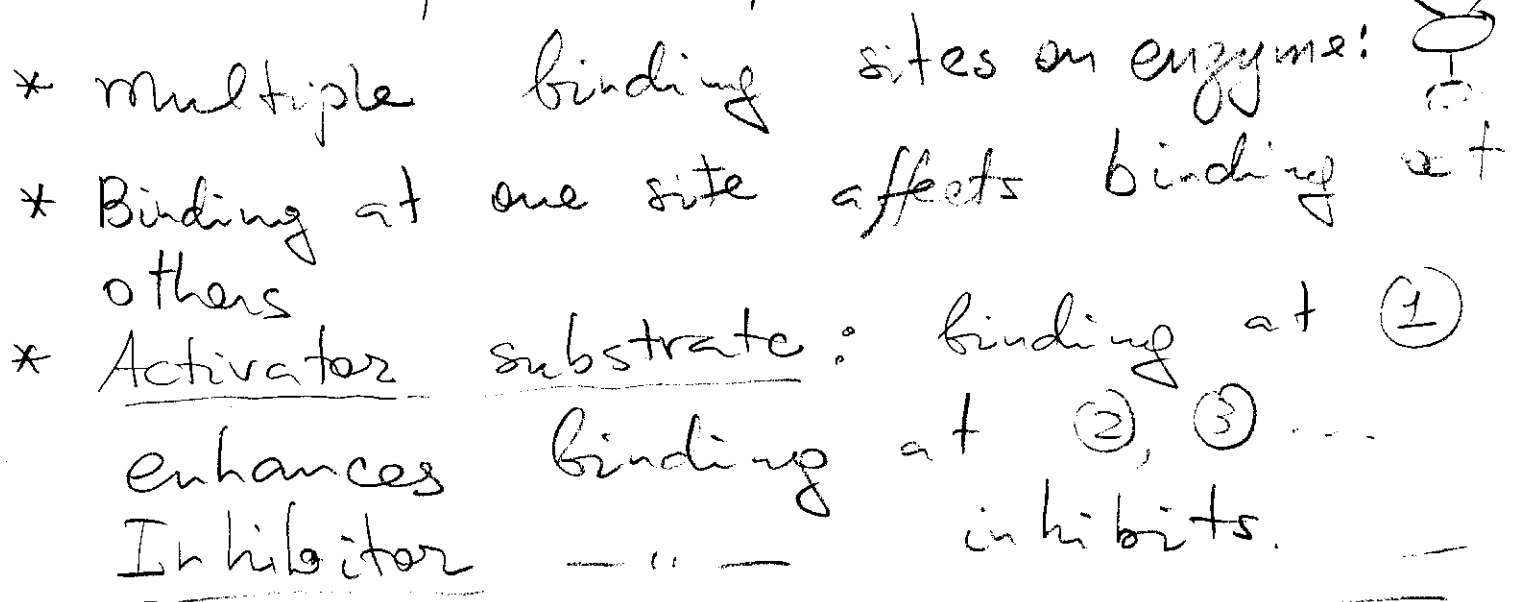 * Multiple binding sites on enzyme:
* Binding at one site affects binding at
others
* Activator substrate: binding at ①
enhances binding at ②, ③ ...
Inhibitor — " — inhibits.